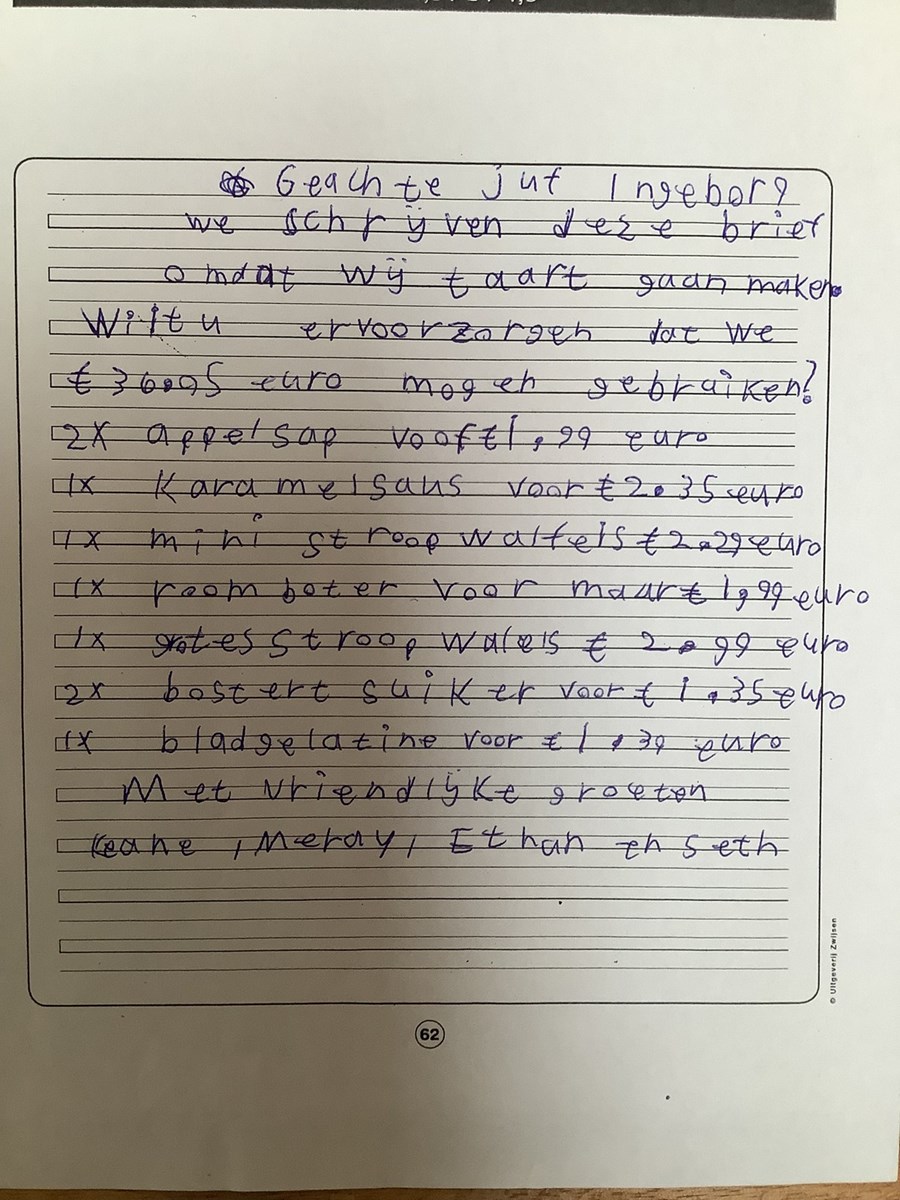 Geachte juf Ingeborg
we schrijven deze brief
omdat wij taart gaan maken.
Wilt u ervoorzorgen dat we
€36.95 euro mogen gebruiken?
2x appelsap voor €1,99 euro
1x karamelsaus voor €2.35 euro
1x mini stroopwaffels €2.29 euro
1x roomboter voor maar €1,99 euro
1x grotes stroopwafels € 2.99 euro
2x bostert suiker voor € 1.35 euro
1x bladgelatine voor € 1,39 euro
Met vriendlijke groeten
Keane, Meray, Ethan en Seth
62
© Uitgeverij Zwijsen